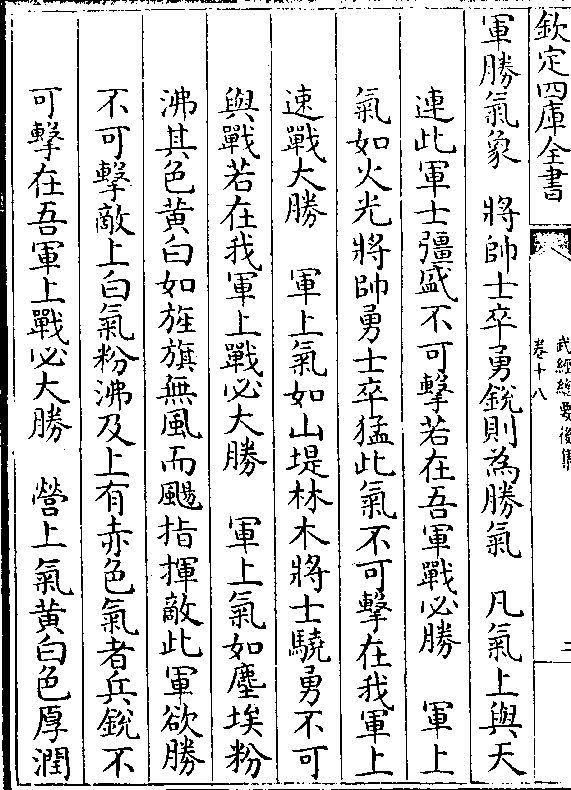 欽定四庫全書
武經總要後集
卷十八
二
軍勝氣象　將帥士卒勇銳則為勝氣　凡氣上與天
連此軍士彊盛不可擊若在吾軍戰必勝　軍上
氣如火光將帥勇士卒猛此氣不可擊在我軍上
速戰大勝　軍上氣如山堤林木將士驍勇不可
與戰若在我軍上戰必大勝　軍上氣如塵埃粉
沸其色黄白如旌旗無風而颺指揮敵此軍欲勝
不可擊敵上白氣粉沸及上有赤色氣者兵銳不
可擊在吾軍上戰必大勝　營上氣黄白色厚潤